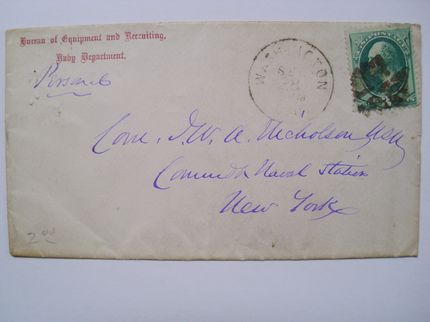 Bureau of Equipment and Recruiting,
Navy Department.
Personal
WASHINGTON
Com. J.W.A. Nicholson USN
Comm'd'g Naval Station
New York
2 00